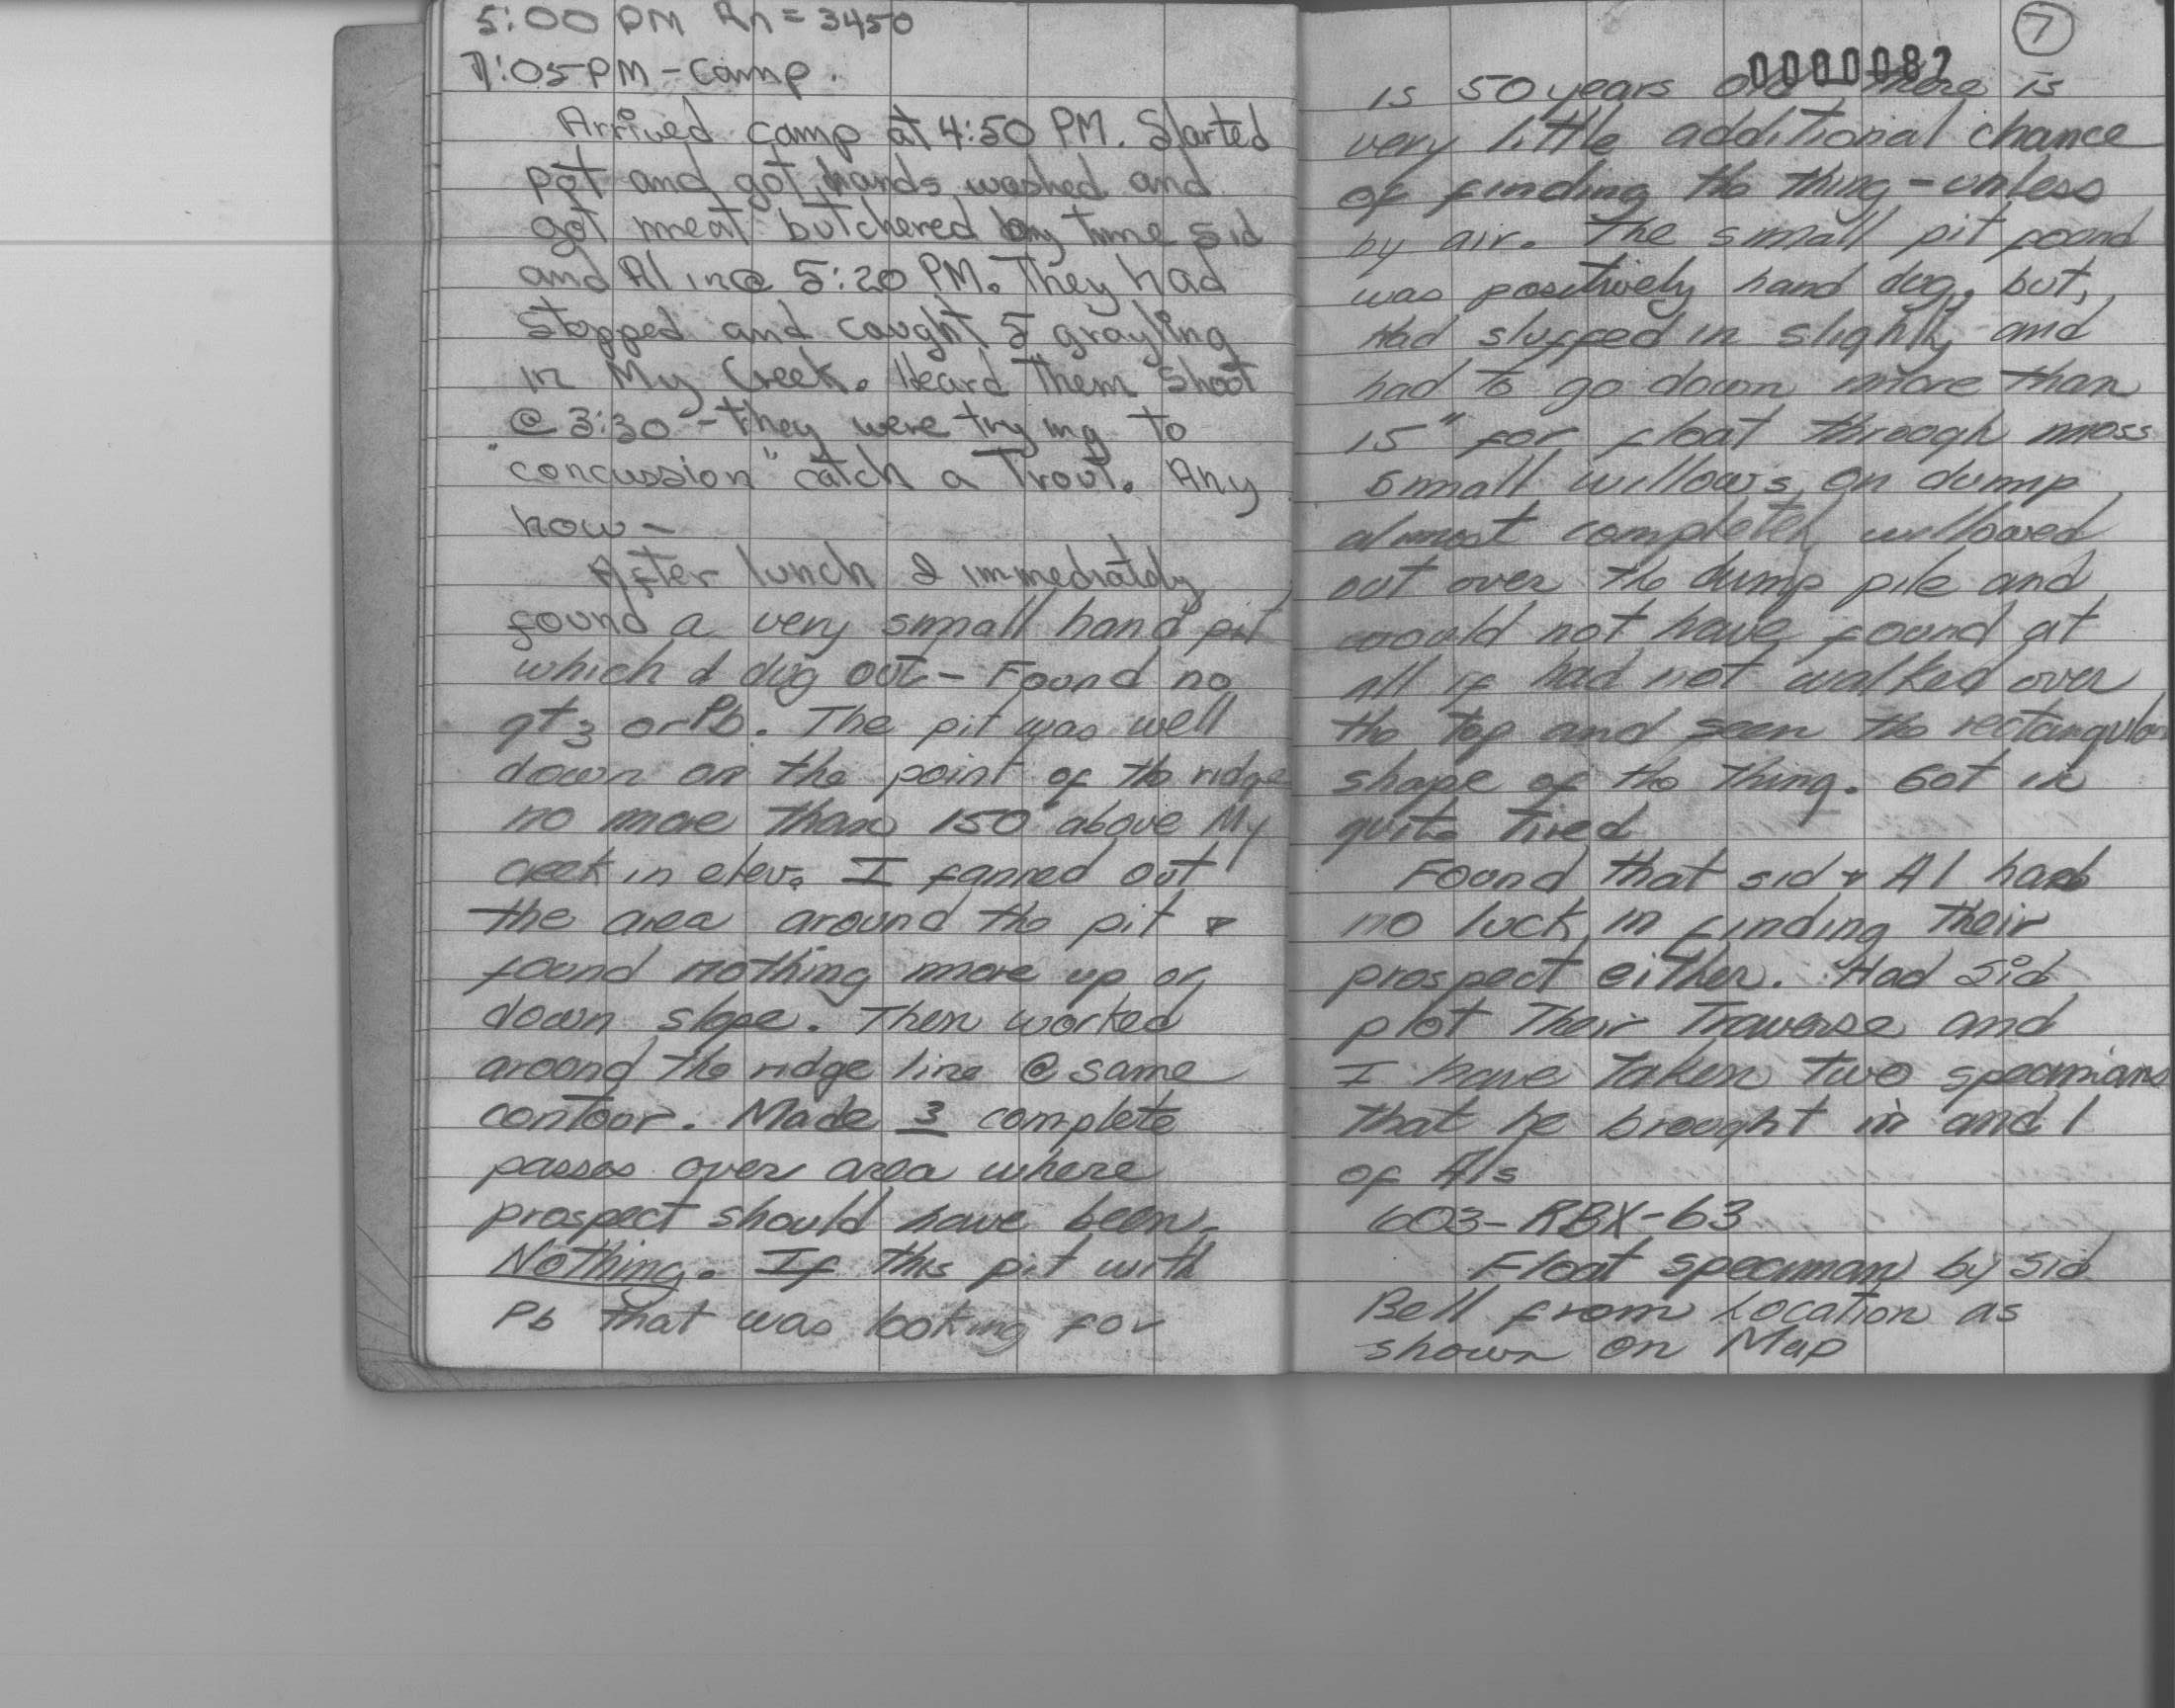 5:00 PM Rn = 3450
7:05 PM - Camp.
Arrived camp at 4:50 PM. Started
pot and got hands washed and
got meat butchered by time Sid
and Al in @ 5:20 PM. They had
stopped and caught 5 grayling
in My Creek. Heard them shoot
@ 3:30 - they were trying to
"concussion" catch a Trout. Any
how -
After lunch I immediately
found a very small hand pit
which I dug out - Found no
qtz or Pb. The pit was well
down on the point of the ridge
no more than 150' above My
creek in elev. I fanned out
the area around the pit &
found nothing more up or
down slope. Then worked
around the ridge line @ same
contour. Made 3 complete
passes over area where
prospect should have been.
Nothing. If this pit with
Pb that was looking for
7
0000082
is 50 years old there is
very little additional chance
of finding the thing - unless
by air. The small pit found
was positively hand dug, but,
Had sluffed in slightly and
had to go down more than
15" for float through moss
small willows on dump
almost completely willowed
out over the dump pile and
would not have found at
all if had not walked over
the top and seen the rectangular
shape of the thing. Got in
quite tired
Found that sid & Al had
no luck in finding their
prospect either. Had Sid
plot Their Traverse and
I have taken two specimans
that he brought in and 1
of Als
603-RBX-63
Float speciman by Sid
Bell from Location as
shown on Map